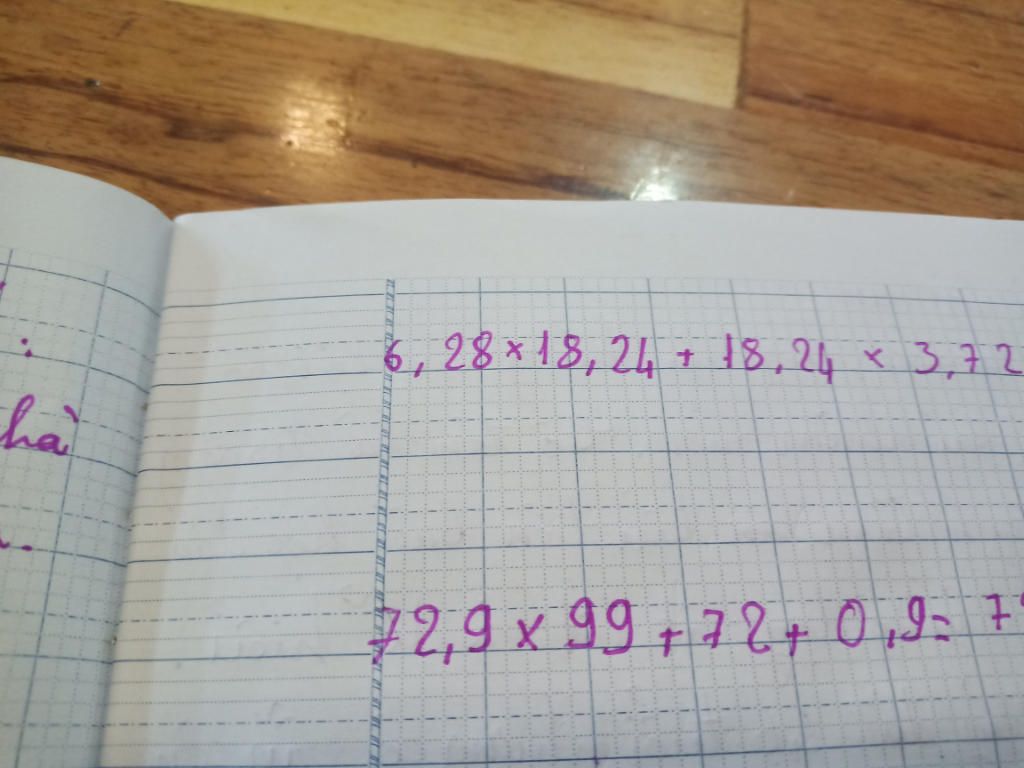 :
hà
6,28 × 18,24 + 18,24 × 3,72
72,9 × 99 + 72 + 0,9 = 7